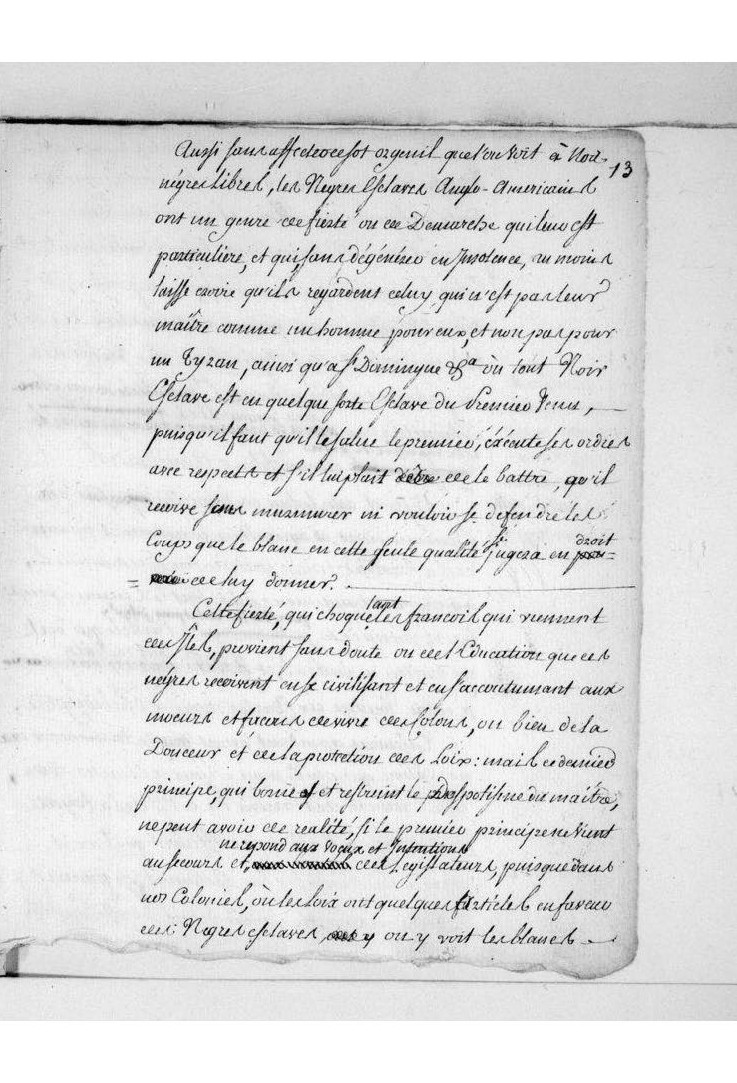 13
Aussi sans affecter ce sot orgueil que l'on voit à Nos
négres libres, les Negres Esclaves Anglo-Americains
ont un genre de fierté ou de Demarche qui leur est
particuliere, et qui, sans dégénérer en Insolence, au moins
laisse croire qu'ils regardent celuy qui n'est pas leur
maître comme un homme pour eux, et non pas pour
un Tyran, ainsi qu'a St Domingue &a où tout Noir
Esclave est en quelque sorte Esclave du Premier Venu,
puisqu'il faut qu'il le salue le premier, éxécute ses ordres
avec respects et s'il lui plait de le battre, qu'il
reçoive sans murmurer ni vouloir se defendre les
Coups que le blanc en cette seule qualité se jugera en droit
de luy donner.
Cette fierté, qui choque tant les francois qui viennent
des Îles, provient sans doute ou de l'Education que ces
négres reçoivent en se civilisant et en s'accoutumant aux
moeurs et facons de vivre des Colons, ou bien de la
Douceur et de la protection des Loix: mais ce dernier
principe, qui borne et restreint le Despotisme du maître,
ne peut avoir de realité, si le premier principe ne vient
au secours et ne repond aux Voeux et Intentions des Legislateurs, puisque dans
nos Colonies, où les loix ont quelques Articles en faveur
des Negres esclaves, on y voit les blancs